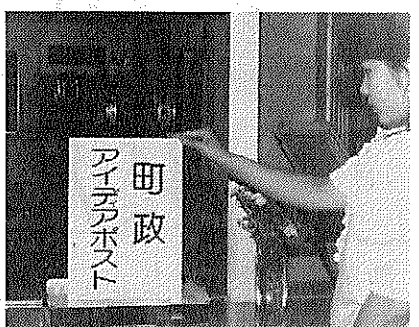 町政
アイデアポスト